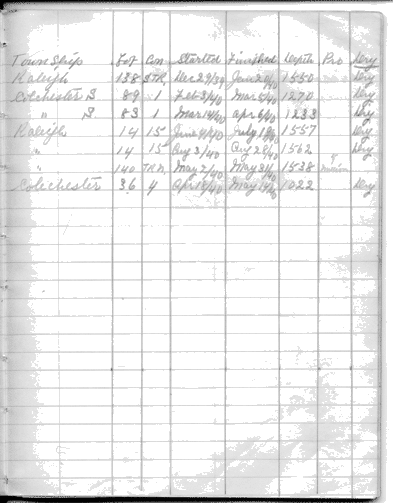 Township Lot Con Started Finished Depth Pro Dry
Raleigh 138 STR Dec 29/39 Jan 20/40 1550 Dry
Colchester S 89 1 Feb 3/40 Mar 5/40 1270 Dry
" S 83 1 Mar 14/40 Apr 6/40 1233 Dry
Raleigh 14 15 June 4/40 July 19/40 1557 Dry
" 14 15 Aug 3/40 Aug 28/40 1562 Dry
" 140 May 7/40 May 31/40 1538
Colechester 36 4 Apr 18/40 May 14/40 1022 Dry